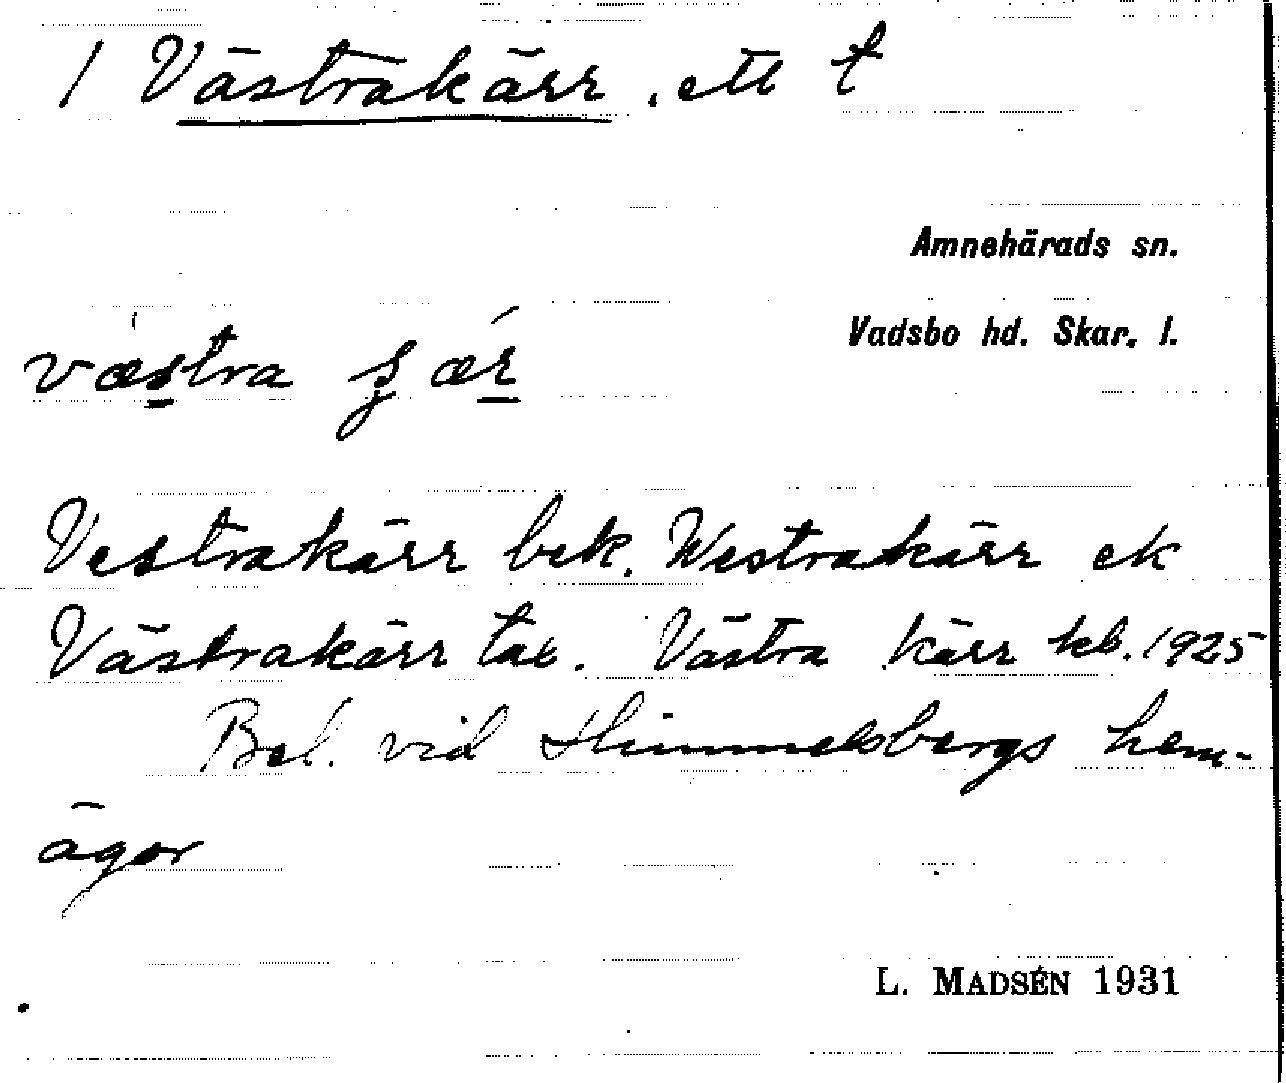 1 Västrakärr, ett t
Amnehärads sn.
Vadsbo hd. Skar. l.
væstra ʂær
Vestrakärr bek. Westrakärr ek
Västrakärr tax. Västra kärr kb. 1925
Bel. vid Himmelsbergs hem-
ägor
L. MADSÉN 1931